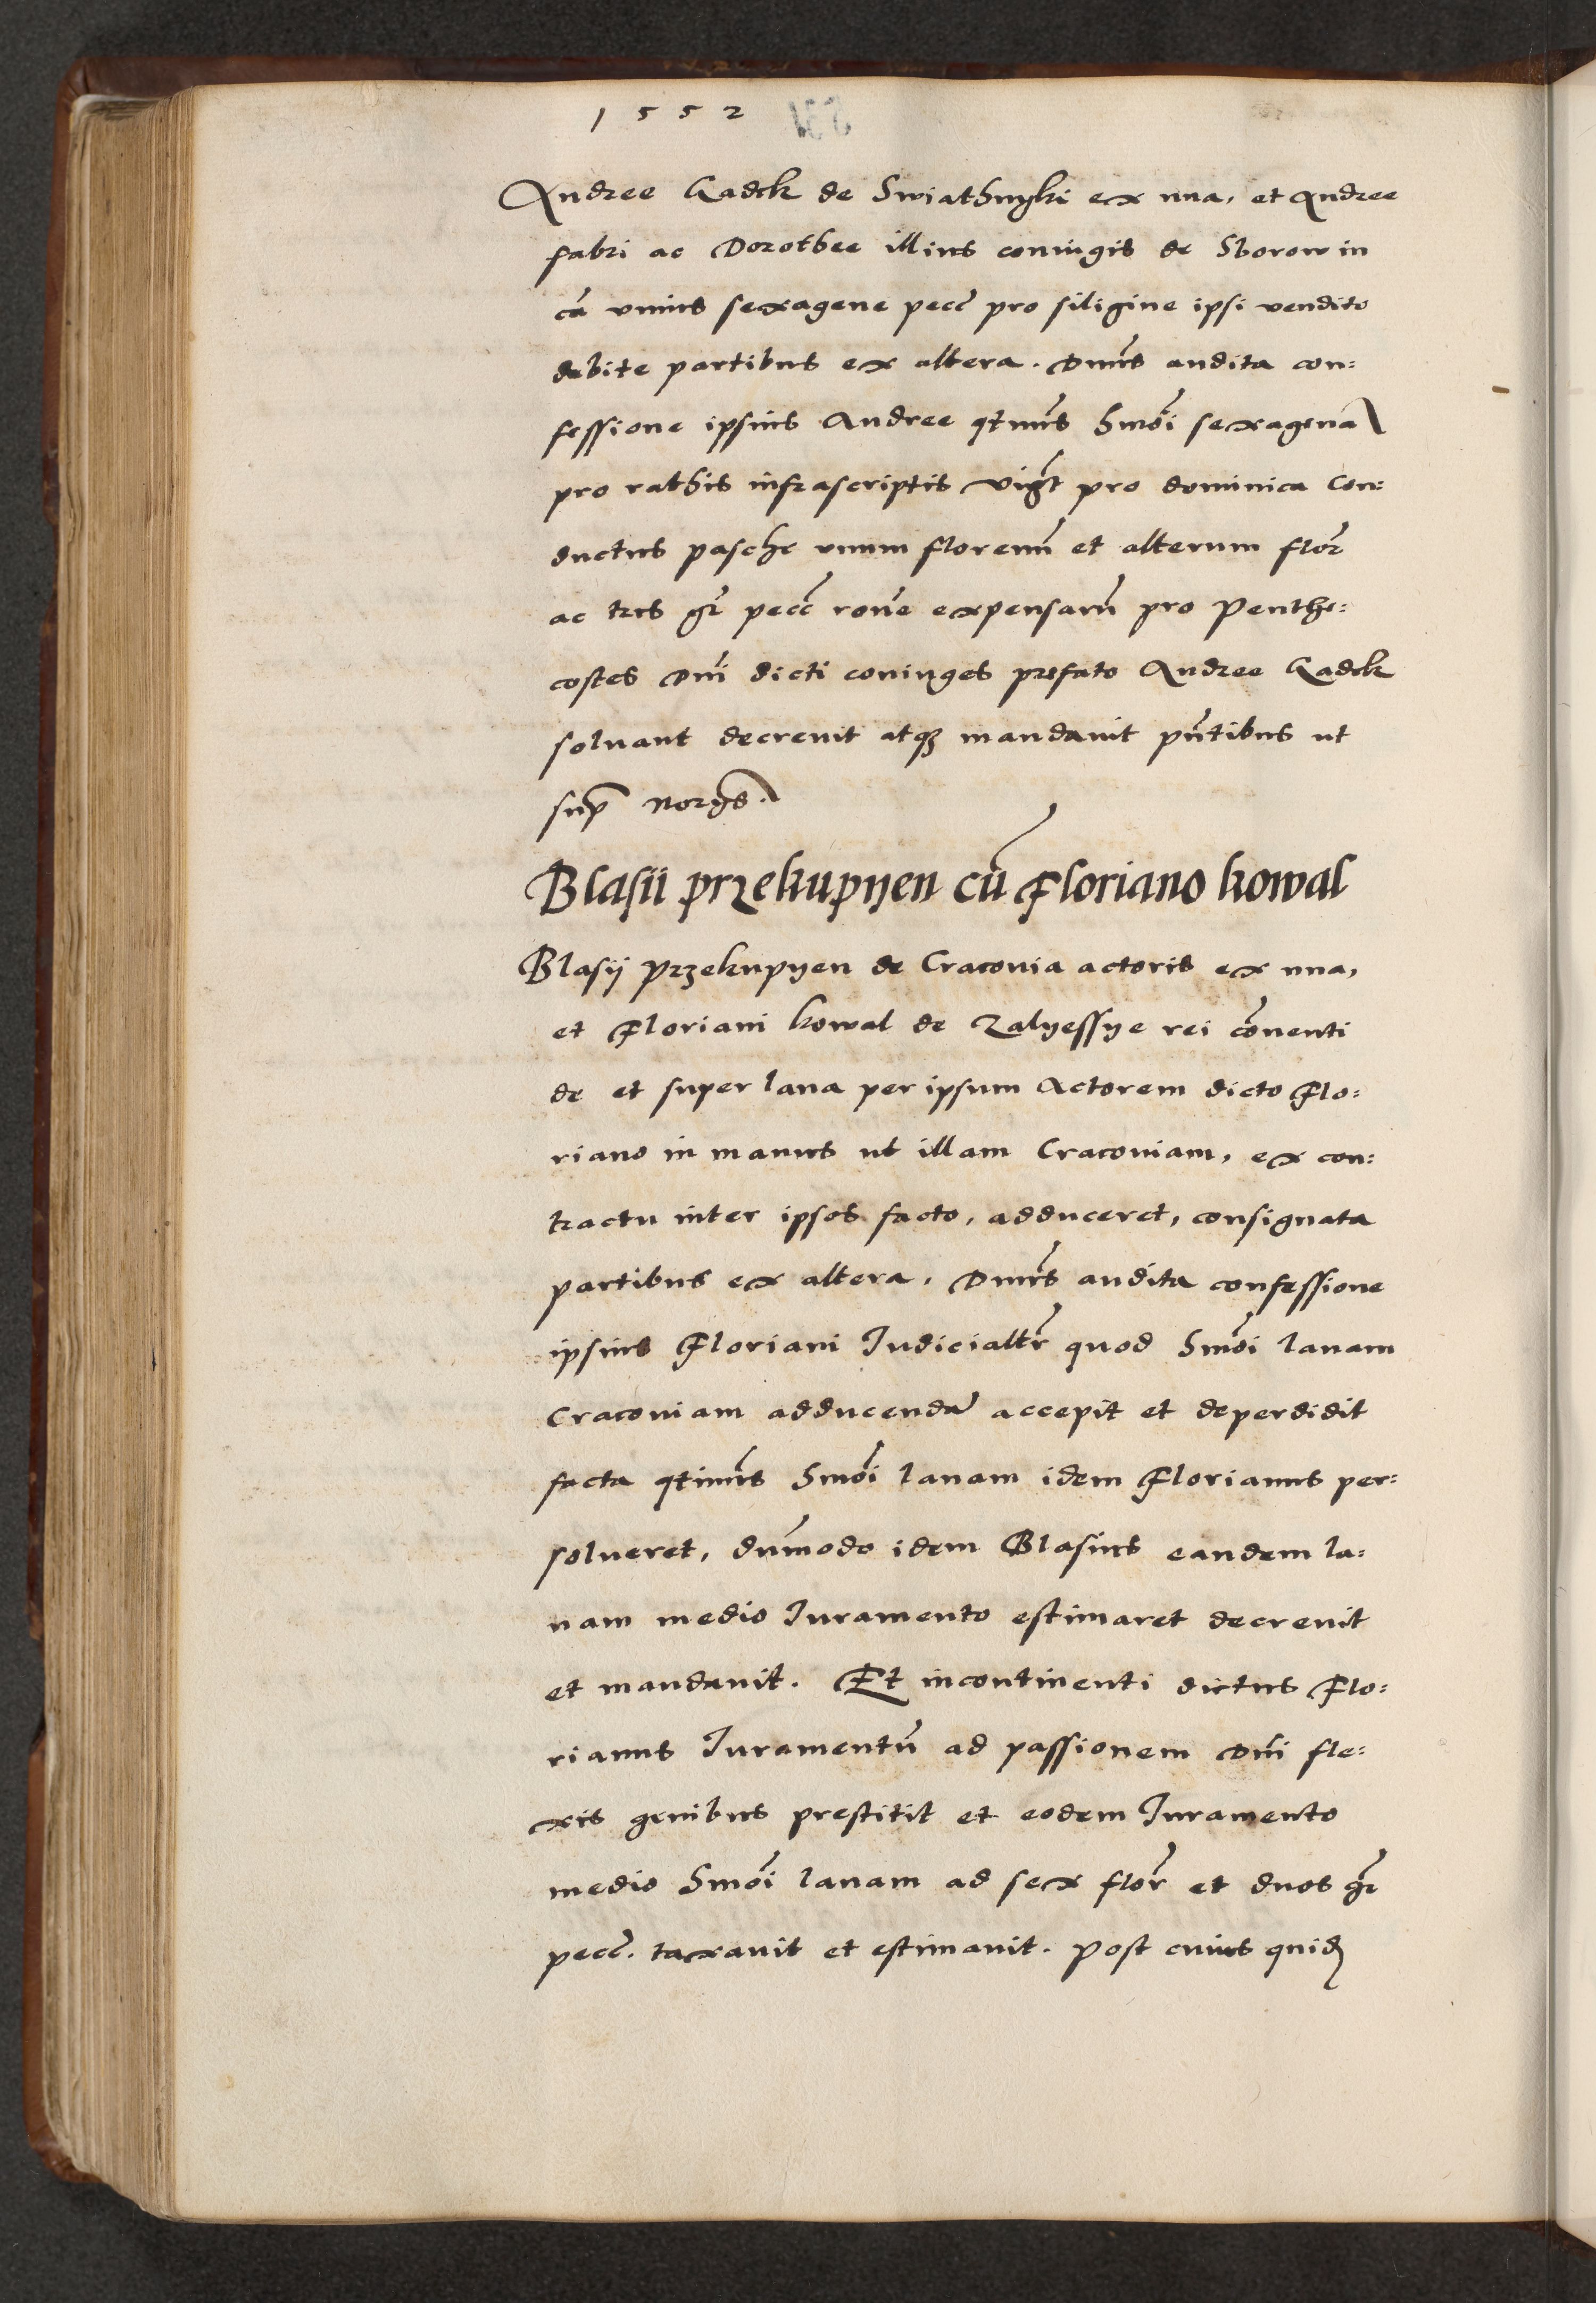 1552
Andree Gadek de Swiathnyki ex una, et Andree
fabri ac Dorothee illius coniugis de Sborow in
cā unius sexagene pecc̄ pro siligine ipsi vendito
debite partibus ex altera. Dnūs audita con=
fessione ipsius Andree qtīnus hm̄oi sexagenā
pro rathis infrascriptis vigl̄t pro dominica Con=
ductus pasche unum florenū et alterum flor̄
ac tres gr̄ pecc̄ rōne expensarū pro Penthe=
costes Dnī dicti coniuges prefato Andree Gadek
soluant decrevit atqꝫ mandavit pn̄tibus ut
sup̄
Blasii przekupyen cū Floriano kowal
Blasij Przekupyen de Craconia actoris ex una,
et Floriani kowal de Zalyessye rei cōventi
de et super lana per ipsum Actorem dicto Flo=
riano in manus ut illam Craconiam, ex con=
tractu inter ipsos facto, adduceret, consignata
partibus ex altera, Dnūs audita confessione
ipsius Floriani Judicialtr̄ quod hm̄oi lanam
Craconiam adducendā accepit et deperdidit
facta qtīnus hm̄oi lanam idem Florianus per=
solveret, dum̄odo idem Blasius eandem la=
nam medio Juramento estimaret decrevit
et mandavit. Et incontinenti dictus Flo=
rianus Juramentū ad passionem Dnī fle=
xis genibus prestitit et eodem Juramento
medio hm̄oi lanam ad sex flor̄ et duos gr̄
pecc̄. taxavit et estimavit. Post cuius quidē